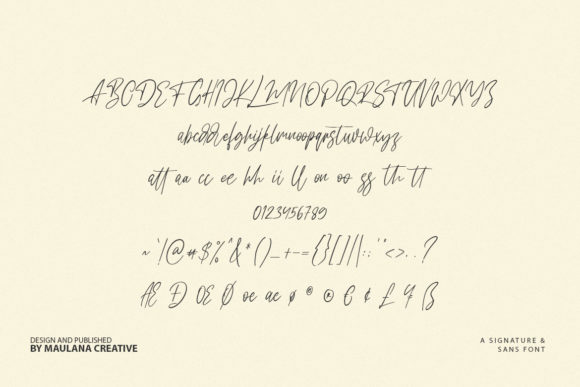 ABCDEFGHIJKLMNOPQRSTUVWXYZ
abcddefghijklmnoopqrstuvwxyz
att aa cc ee hh ii ll on oo ss th tt
0123456789
~`!@#$%^&*()_+-={}[]|\:;"'<>,.?
Æ Đ Œ Ø œ æ ø ® © € ¢ £ ¥ ß
DESIGN AND PUBLISHED
BY MAULANA CREATIVE
A SIGNATURE &
SANS FONT